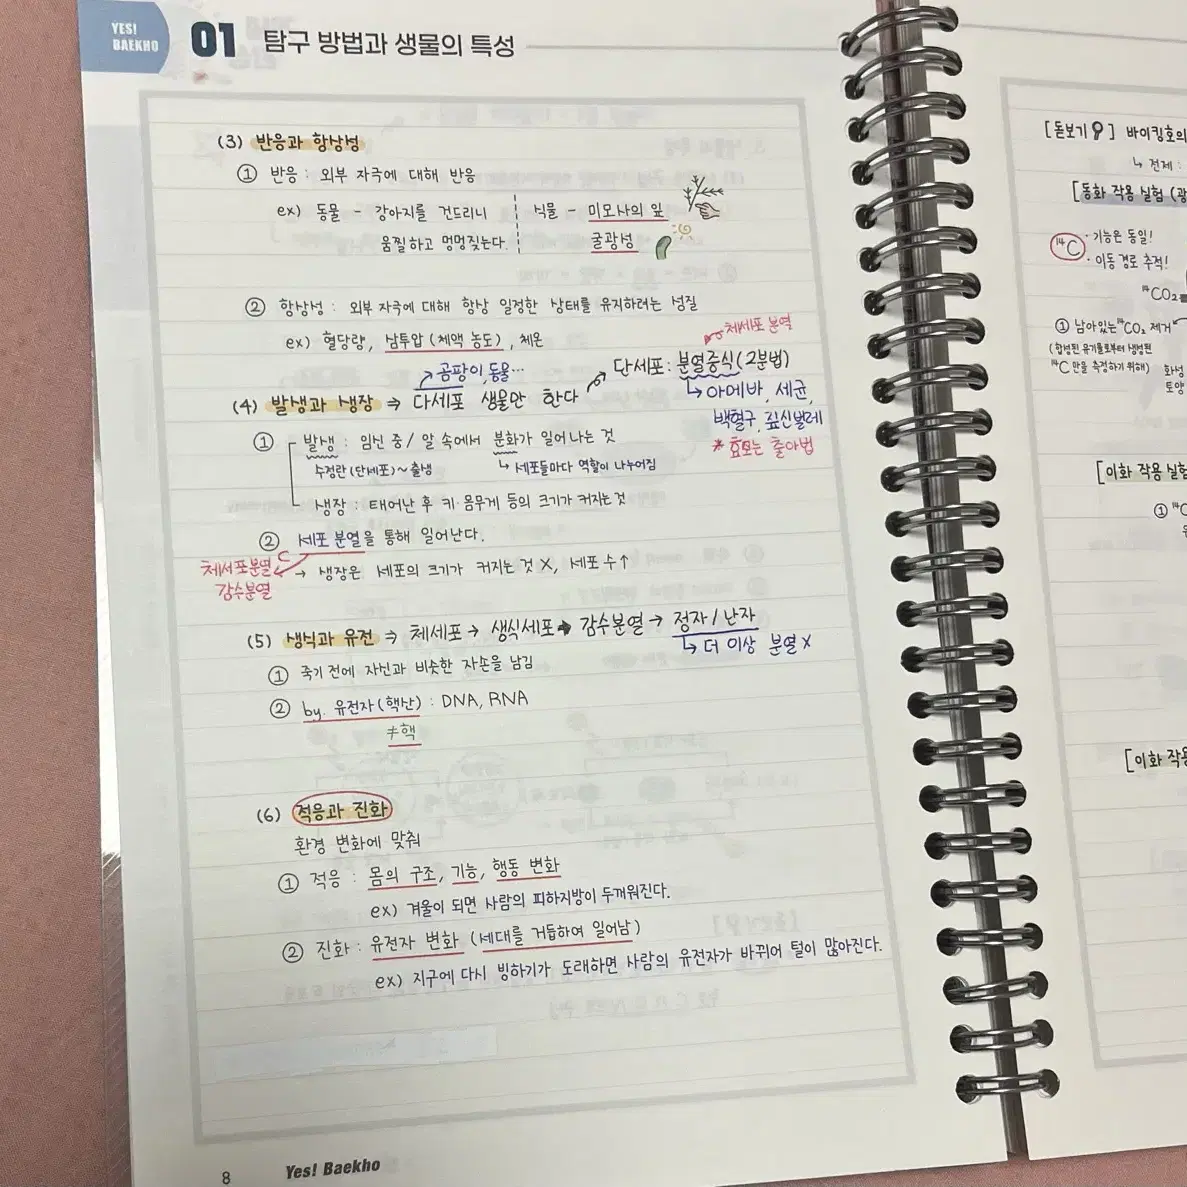 YES!
BAEKHO
01 탐구 방법과 생물의 특성
(3) 반응과 항상성
① 반응 : 외부 자극에 대해 반응
ex) 동물 - 강아지를 건드리니 식물 - 미모사의 잎
움찔하고 멍멍짖는다. 굴광성
② 항상성 : 외부 자극에 대해 항상 일정한 상태를 유지하려는 성질
ex) 혈당량, 삼투압 (체액 농도), 체온
체세포 분열
곰팡이, 동물…
단세포 : 분열증식 (2분법)
(4) 발생과 생장 ⇒ 다세포 생물만 한다
↳ 아메바, 세균,
백혈구, 짚신벌레
* 효모는 출아법
① 발생 : 임신 중 / 알 속에서 분화가 일어나는 것
수정란 (단세포) ~ 출생 ↳ 세포들마다 역할이 나누어짐
생장 : 태어난 후 키·몸무게 등의 크기가 커지는 것
② 세포 분열을 통해 일어난다.
체세포분열
감수분열
→ 생장은 세포의 크기가 커지는 것 X, 세포 수↑
(5) 생식과 유전 ⇒ 체세포 → 생식세포 → 감수분열 → 정자 / 난자
↳ 더 이상 분열 X
① 죽기 전에 자신과 비슷한 자손을 남김
② by. 유전자 (핵산) : DNA, RNA
≠핵
(6) 적응과 진화
환경 변화에 맞춰
① 적응 : 몸의 구조, 기능, 행동 변화
ex) 겨울이 되면 사람의 피하지방이 두꺼워진다.
② 진화 : 유전자 변화 (세대를 거듭하여 일어남)
ex) 지구에 다시 빙하기가 도래하면 사람의 유전자가 바뀌어 털이 많아진다.
8 Yes! Baekho
[돋보기] 바이킹호의
↳ 전제 :
[동화 작용 실험 (광
¹⁴C · 기능은 동일!
· 이동 경로 추적!
¹⁴CO₂
① 남아있는 ¹⁴CO₂ 제거
(합성된 유기물로부터 생성된
¹⁴C만을 측정하기 위해)
화성
토양
[이화 작용 실험
① ¹⁴C
[이화 작용